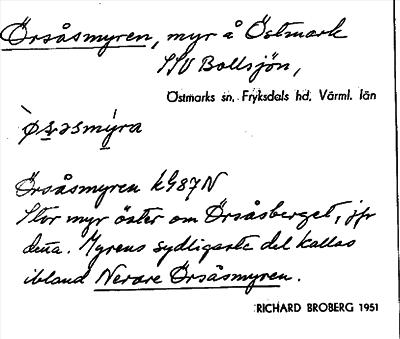 Örsåsmyren, myr å Östmark
SSV Bollsjön,
Östmarks sn, Fryksdals hd, Värml. län
Örsåsmyren kG87N
Stor myr öster om Örsåsberget, jfr
detta. Myrens sydligaste del kallas
ibland Nerare Örsåsmyren.
RICHARD BROBERG 1951